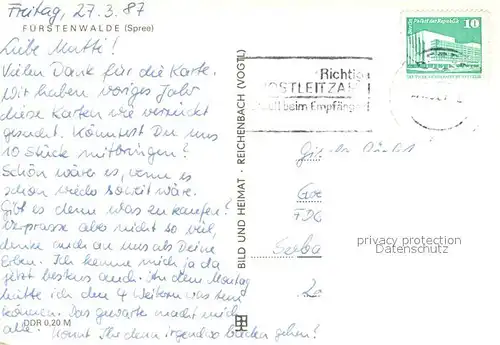 Freitag, 27.3.87
FÜRSTENWALDE (Spree)
Liebe Mutti!
Vielen Dank für die Karte.
Wir haben voriges Jahr
diese Karten wie verrückt
gesucht. Könntest Du uns
10 Stück mitbringen?
Schön wäre es, wenn es
schon wieder soweit wäre.
Gibt es denn was zu kaufen?
Verprasse aber nicht so viel,
denke auch an uns als Deine
Erben. Ich kenne mich ja da
jetzt bestens auch. An dem Montag
hätte ich den 4 Weitern was
können. Das gewarte macht mich
alle. Könnt Ihr denn irgendwo baden gehen!
DDR 0,20 M
BILD UND HEIMAT · REICHENBACH (VOGTL)
Richtig
POSTLEITZAHL
beim Empfänger
Berlin, Palast der Republik
10
privacy protection
Datenschutz